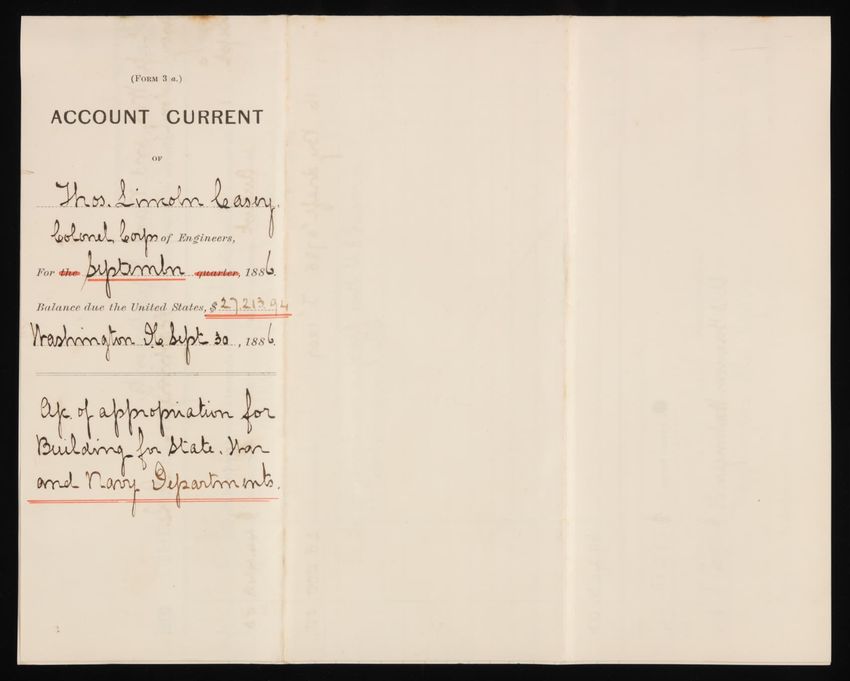 (Form 3 a.)
ACCOUNT CURRENT
OF
Thos. Lincoln Casey,
Colonel, Corps of Engineers,
For the September quarter, 1886.
Balance due the United States, $27,213.94
Washington DC Sept 30, 1886.
A/c. of appropriation for
Building for State, War
and Navy Departments.